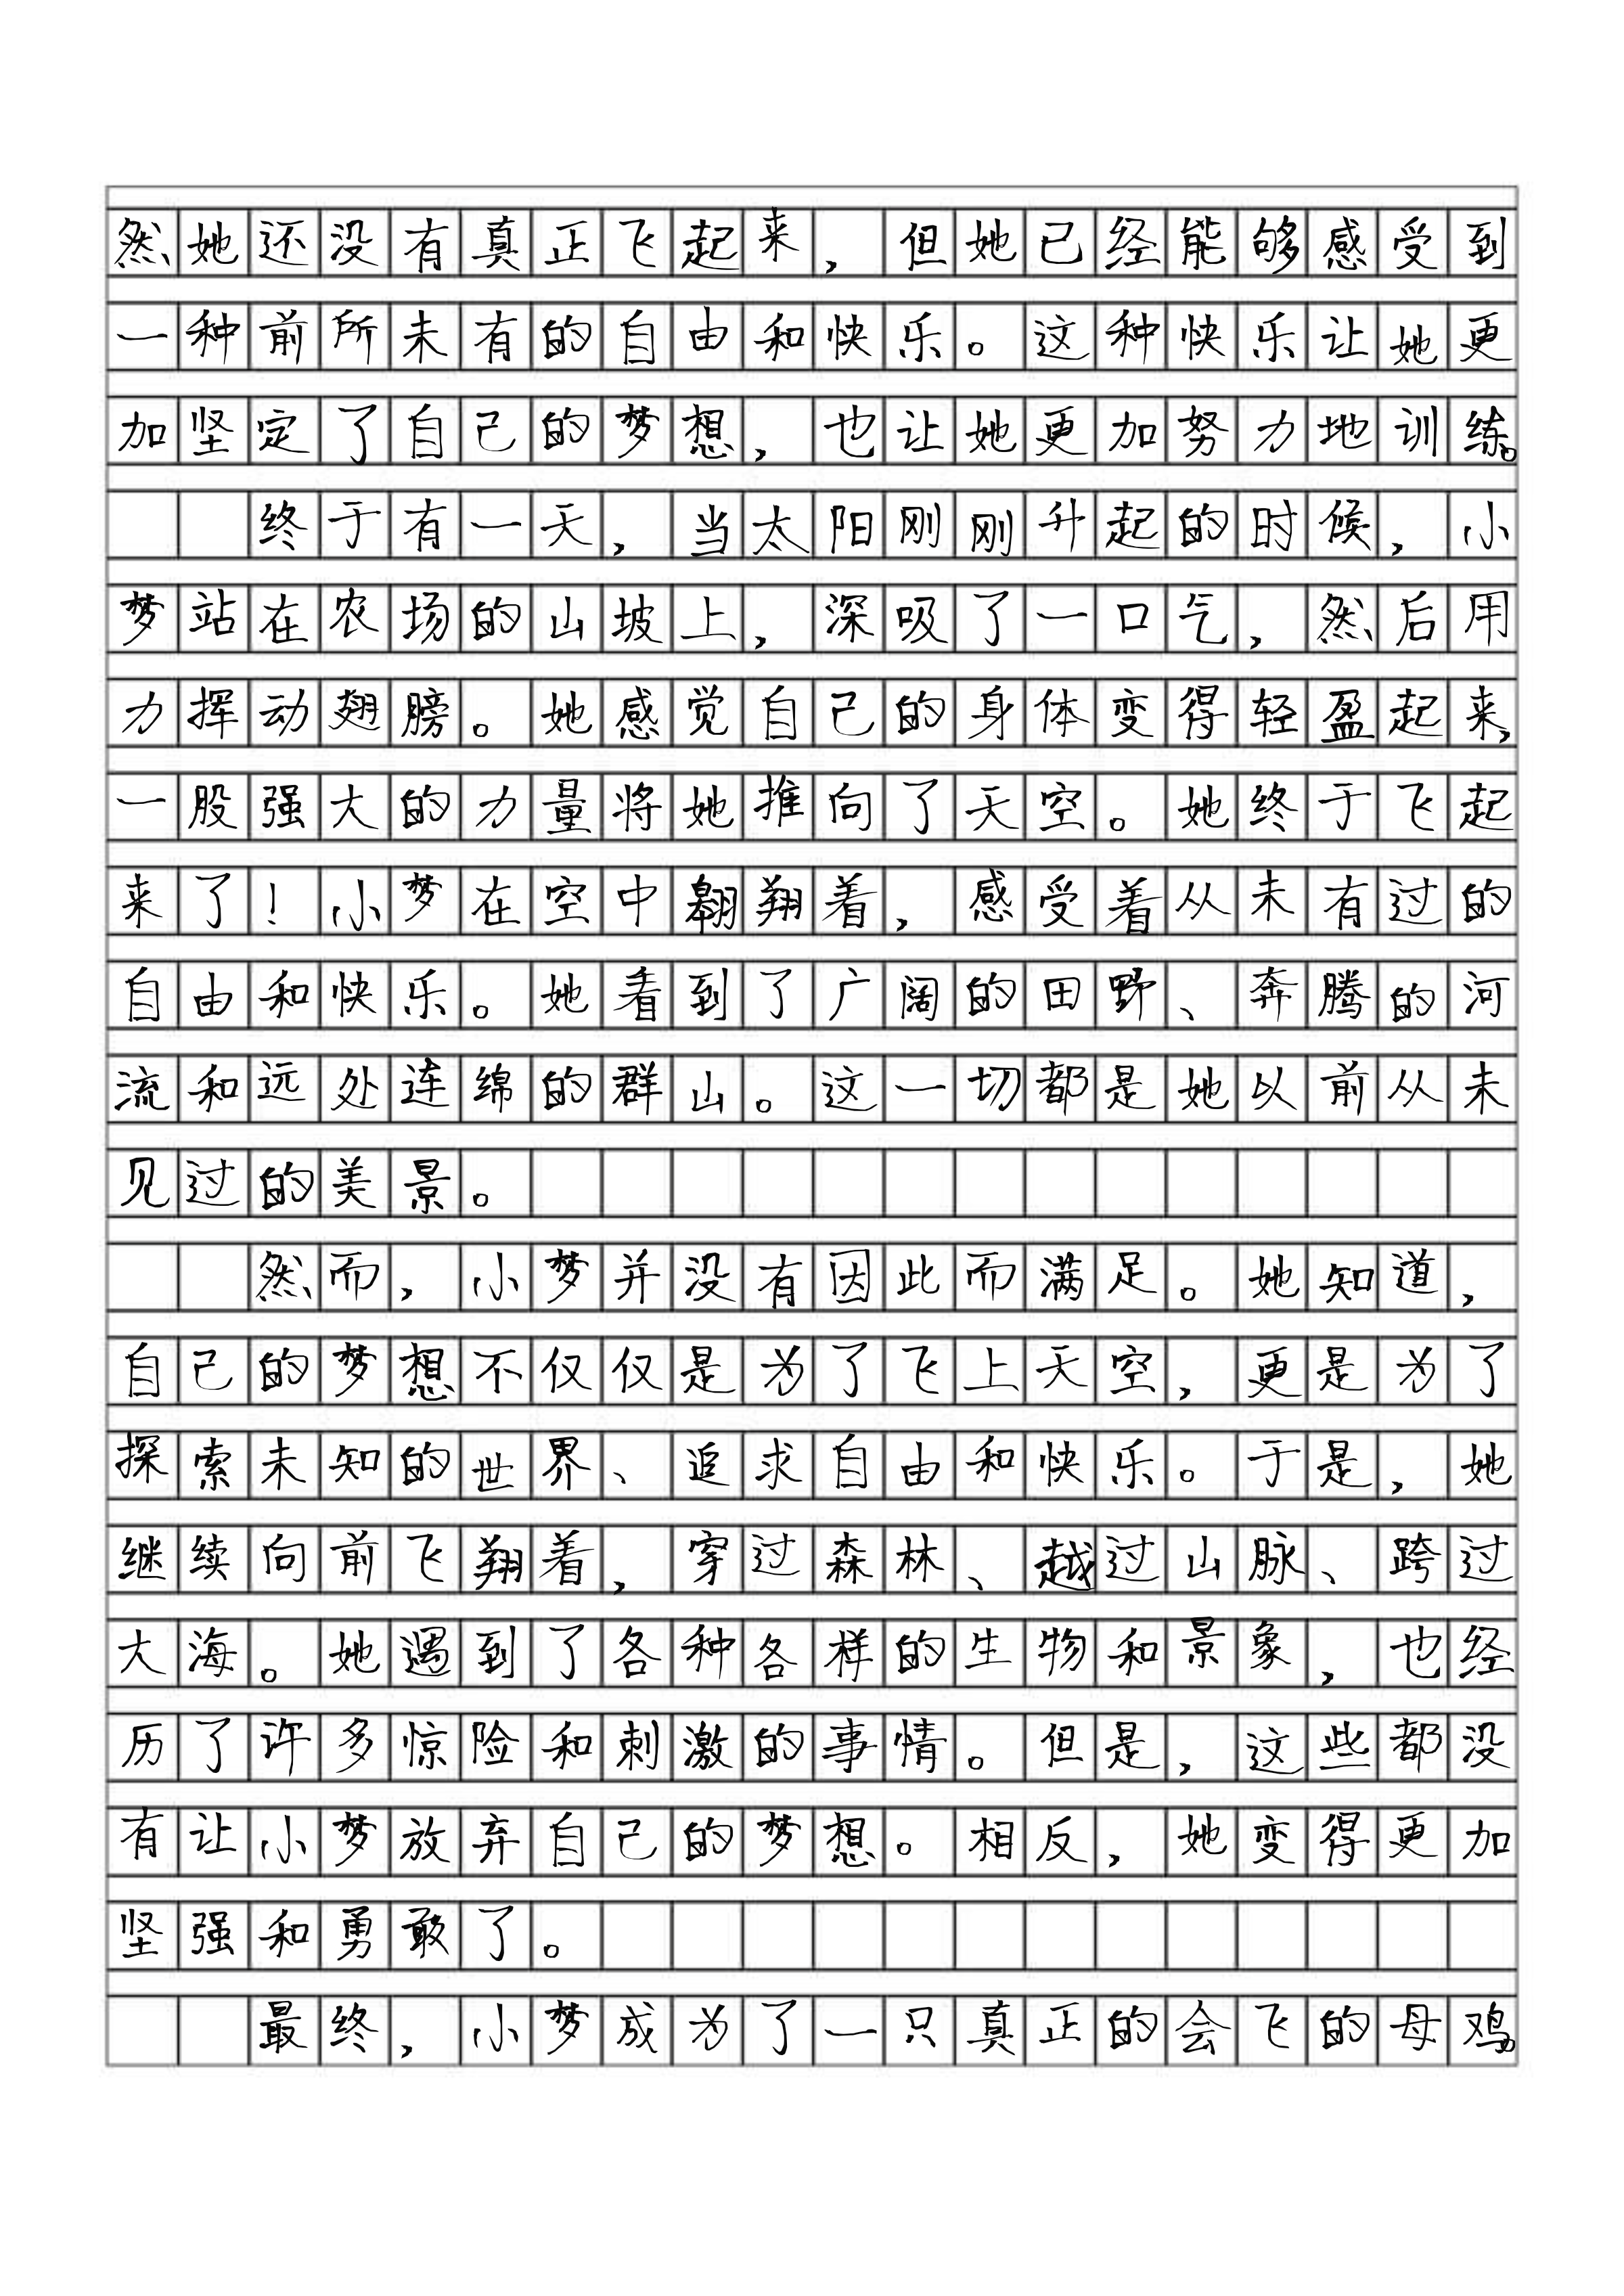 然她还没有真正飞起来，但她已经能够感受到
一种前所未有的自由和快乐。这种快乐让她更
加坚定了自己的梦想，也让她更加努力地训练。
终于有一天，当太阳刚刚升起的时候，小
梦站在农场的山坡上，深吸了一口气，然后用
力挥动翅膀。她感觉自己的身体变得轻盈起来，
一股强大的力量将她推向了天空。她终于飞起
来了！小梦在空中翱翔着，感受着从未有过的
自由和快乐。她看到了广阔的田野、奔腾的河
流和远处连绵的群山。这一切都是她以前从未
见过的美景。
然而，小梦并没有因此而满足。她知道，
自己的梦想不仅仅是为了飞上天空，更是为了
探索未知的世界、追求自由和快乐。于是，她
继续向前飞翔着，穿过森林、越过山脉、跨过
大海。她遇到了各种各样的生物和景象，也经
历了许多惊险和刺激的事情。但是，这些都没
有让小梦放弃自己的梦想。相反，她变得更加
坚强和勇敢了。
最终，小梦成为了一只真正的会飞的母鸡。